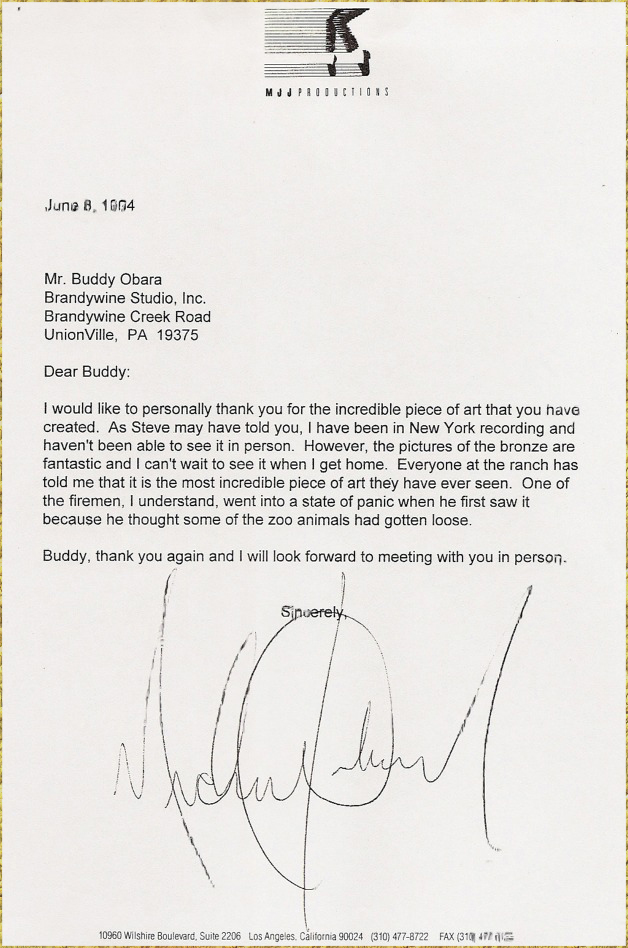 MJJ PRODUCTIONS
June 8, 1994
Mr. Buddy Obara
Brandywine Studio, Inc.
Brandywine Creek Road
UnionVille, PA 19375
Dear Buddy:
I would like to personally thank you for the incredible piece of art that you have
created. As Steve may have told you, I have been in New York recording and
haven't been able to see it in person. However, the pictures of the bronze are
fantastic and I can't wait to see it when I get home. Everyone at the ranch has
told me that it is the most incredible piece of art they have ever seen. One of
the firemen, I understand, went into a state of panic when he first saw it
because he thought some of the zoo animals had gotten loose.
Buddy, thank you again and I will look forward to meeting with you in person.
Sincerely,
10960 Wilshire Boulevard, Suite 2206 Los Angeles, California 90024 (310) 477-8722 FAX (310)